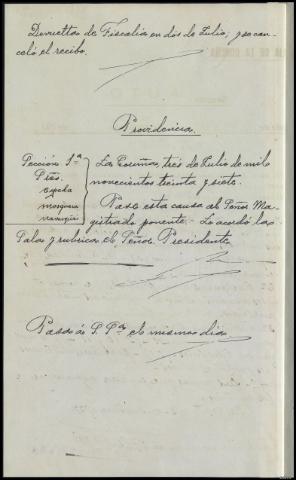 Devueltos de Fiscalía en dos de Julio, y se can-
celó el recibo.
Providencia.
Sección 1ª
Sres.
La Coruña, tres de Julio de mil
novecientos treinta y siete.
Pase esta causa al Señor Ma-
gistrado ponente. Lo acordó la
Sala y rubrica el Señor Presidente
Pasa á S. Sª el mismo dia